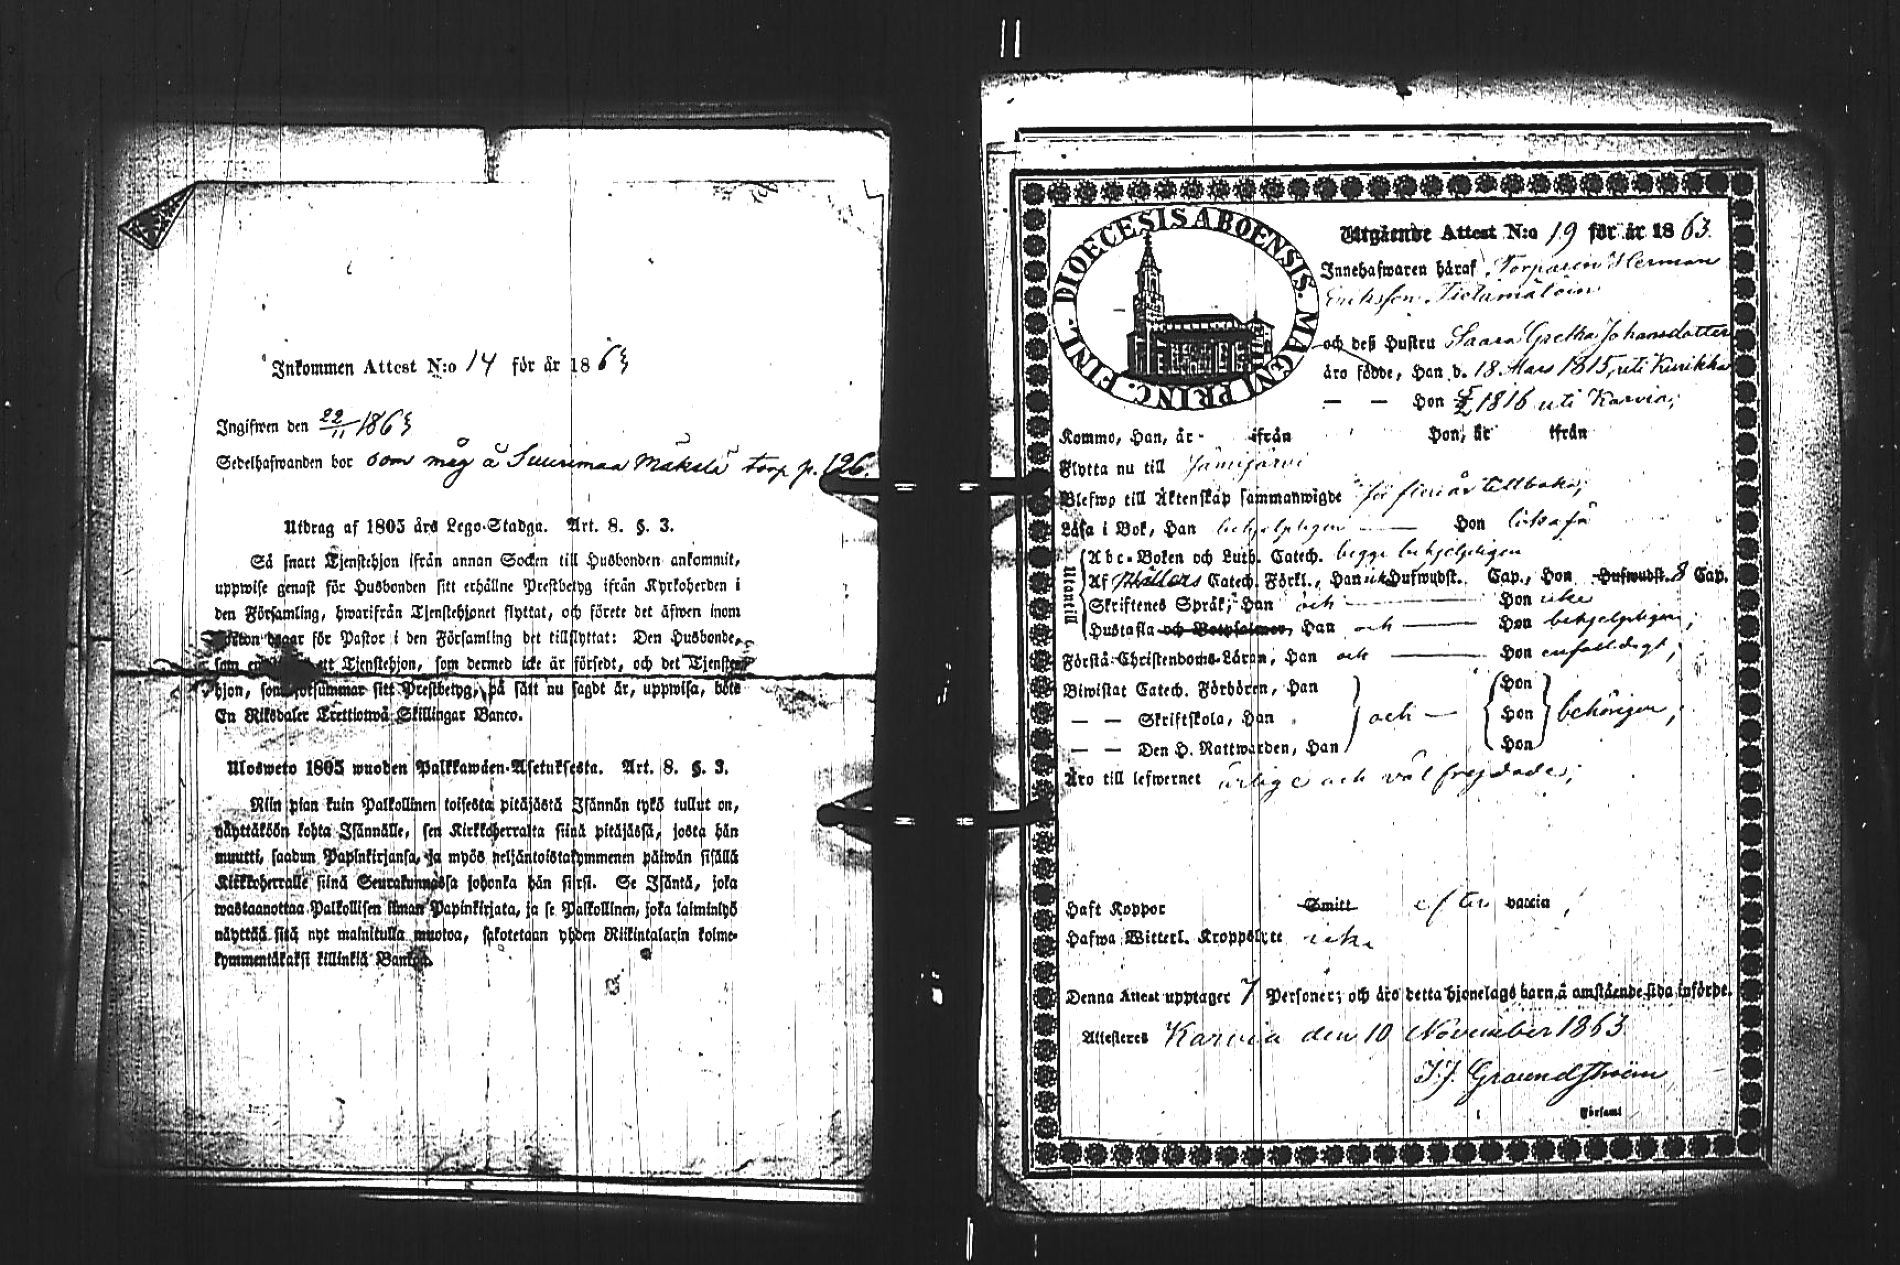 Inkommen Attest N:o 14 för år 1863
Ingifwen den 22/11 1863
Sedelhafwanden bor som måg å Suurimaa Mäkelä torp p. 196.
Utdrag af 1805 års Lego-Stadga. Art. 8. §. 3.
Så snart Tjenstehjon ifrån annan Socken till Husbonden ankommit,
uppwise genast för Husbonden sitt erhållne Prestbetyg ifrån Kyrkoherden i
den Församling, hwarifrån Tjenstehjonet flyttat, och förete det äfwen inom
dagar för Pastor i den Församling det tillflyttat: Den Husbonde,
som ett Tjenstehjon, som dermed icke är försedt, och det Tjenste-
hjon, som försummar sitt Prestbetyg, på sätt nu sagdt är, uppwisa, böte
En Riksdaler Trettiotwå Skillingar Banco.
Ulosweto 1805 wuoden Palkkawäen-Asetuksesta. Art. 8. §. 3.
Niin pian kuin Palkollinen toisesta pitäjästä Isännän tykö tullut on,
näyttäköön kohta Isännälle, sen Kirkkoherralta siinä pitäjässä, josta hän
muutti, saadun Papinkirjansa, ja myös neljäntoistakymmenen päiwän sisällä
Kirkkoherralle siinä Seurakunnassa johonka hän siirsi. Se Isäntä, joka
wastaanottaa Palkollisen ilman Papinkirjata, ja se Palkollinen, joka laiminlyö
näyttää sitä nyt mainitulla muotoa, sakotetaan yhden Riikintalarin kolme-
kymmentäkaksi killinkiä Bankoa.
DIOECESIS ABOENSIS. MAGNI PRINC. FINL.
Utgående Attest N:o 19 för år 1863.
Innehafwaren häraf Torparen Herman
Eriksson
och deß Hustru Saara Gretha Johansdotter
äro födde, Han d. 18 Mars 1815, uti Kurikka
— — Hon 1816 uti Karvia;
Kommo, Han, år - ifrån Hon, år ifrån
Flytta nu till Jämijärvi
Blefwo till Äktenskap sammanwigde för flera år tillbaka;
Läsa i Bok, Han behjelpligen — Hon likaså
Utantill
Abc-Boken och Luth. Catech. begge behjelpligen
Af Möllers Catech. Förkl., Han Hufwudst. Cap., Hon Hufwudst. 8 Cap.
Skriftenes Språk, Han och — Hon icke
Hustafla och Botpsalmer, Han och — Hon behjelpligen;
Förstå Christendoms-Läran, Han och — Hon enfaldigt;
Biwistat Catech. Förhören, Han Hon
— — Skriftskola, Han och — Hon behörigen;
— — Den H. Nattwarden, Han Hon
Äro till lefwernet ärlige och väl frejdade;
Haft Koppor Smitt efter vaccin;
Hafwa Witterl. Kroppslyte icke
Denna Attest upptager 7 Personer; och äro detta hjonelags barn å omstående sida införde.
Attesteras Karvia den 10 November 1863
Församl